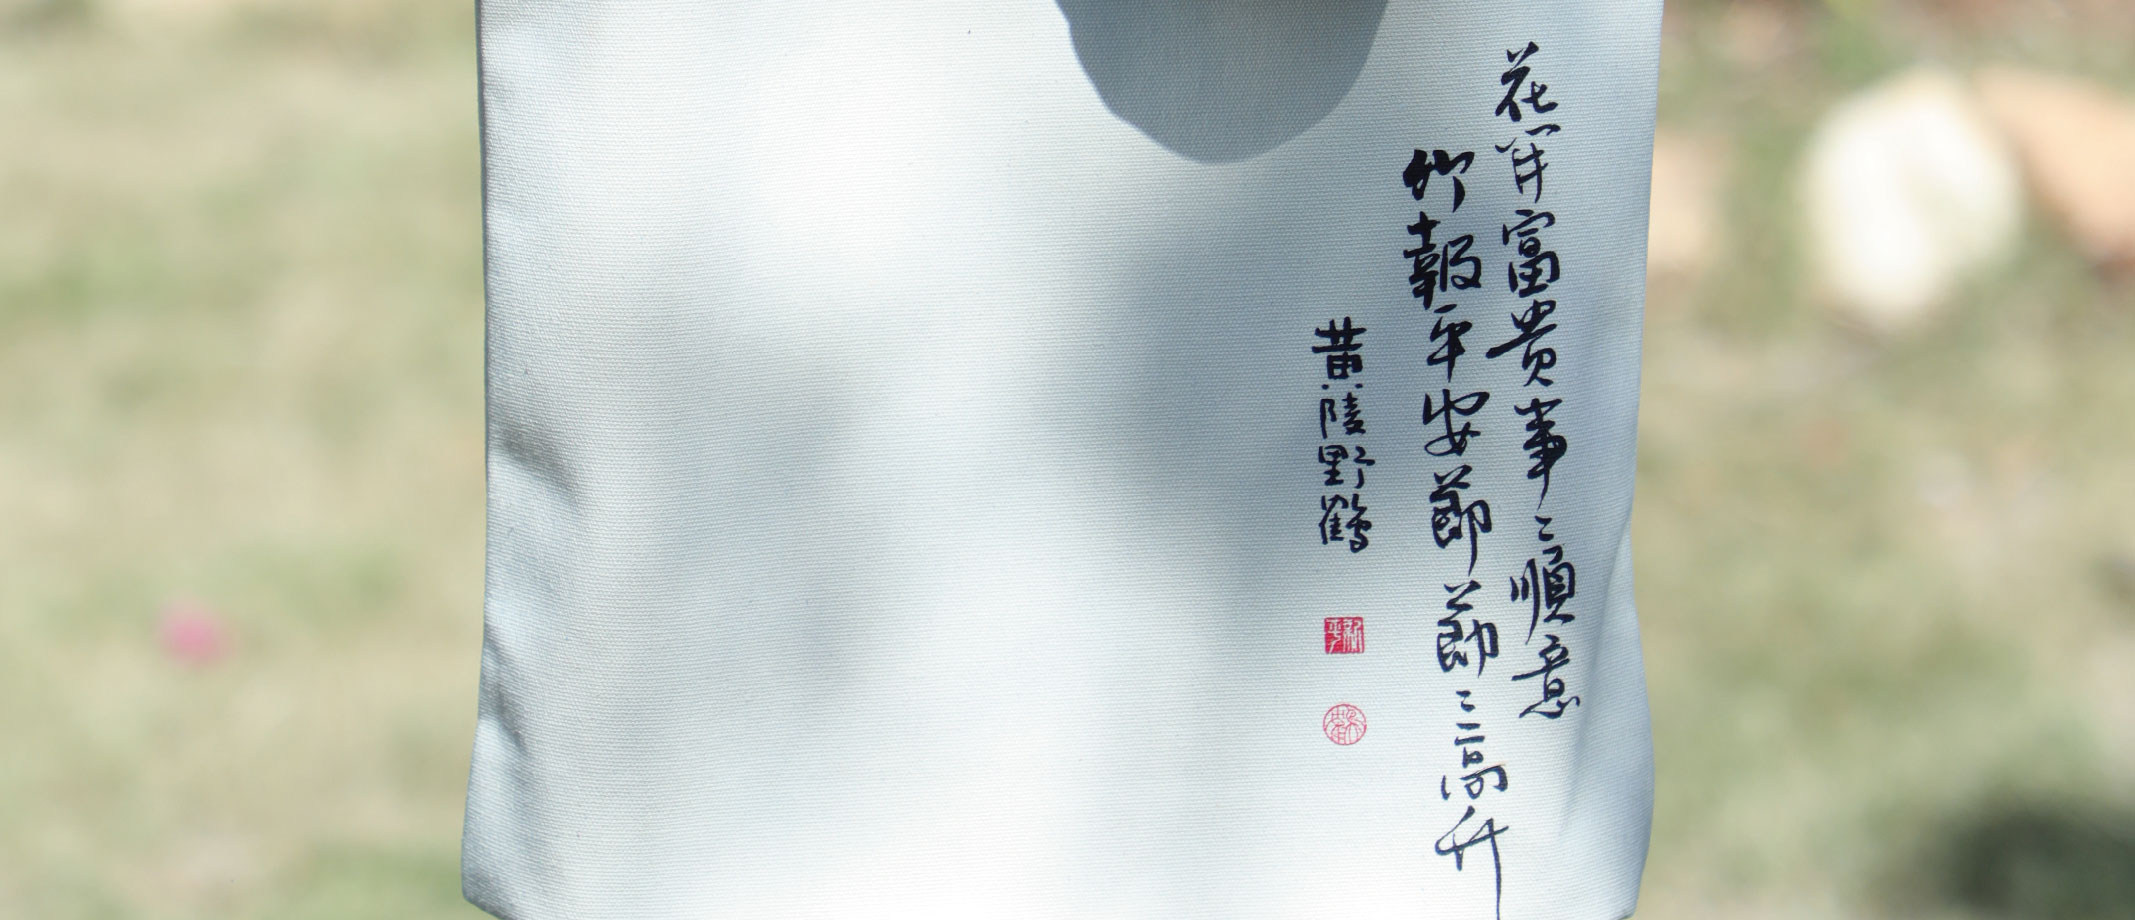 花開富貴事〻順意
竹報平安節節〻高升
黄陵野鶴